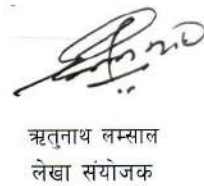 ऋतुनाथ लम्साल
लेखा संयोजक